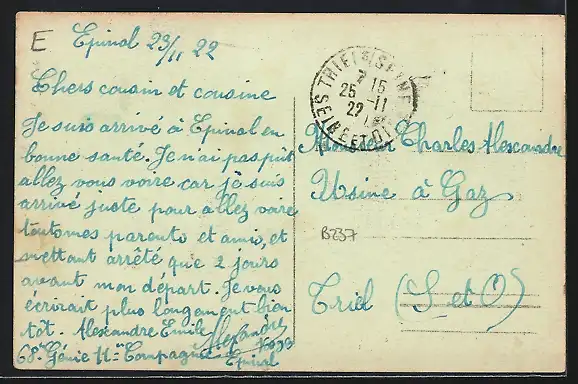 E
Epinal 23/11 22
Chers cousin et cousine
Je suis arrivé à Epinal en
bonne santé. Je n'ai pas put
allez vous voire car je suis
arrivé juste pour allez voire
toutomes parents et amis, et
mettant arrêté que 2 jours
avant mon départ. Je vous
écrirait plus longument bien
tôt. Alexandre Emile
68e Génie 11e Compagnie Epinal
Alexandre
TRIEL S/SEINE
7 15
25 -11
22
SEINE ET OISE
Monsieur Charles Alexandre
Usine à Gaz
B237
Triel (S et O)